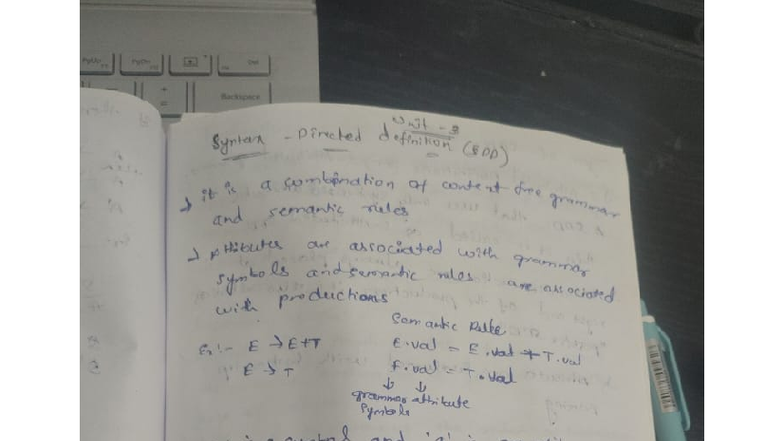 PgUp PgDn Del
+
=
Backspace
Unit - 3
Syntax - Directed definition (SDD)
→ it is a combination of context free grammar
and semantic rules
→ Attributes are associated with grammar
symbols and semantic rules are associated
with productions
Semantic Rule
Ex :- E → E+T E.val = E.val + T.val
E → T E.val = T.val
↓ ↓
grammar attribute
symbols